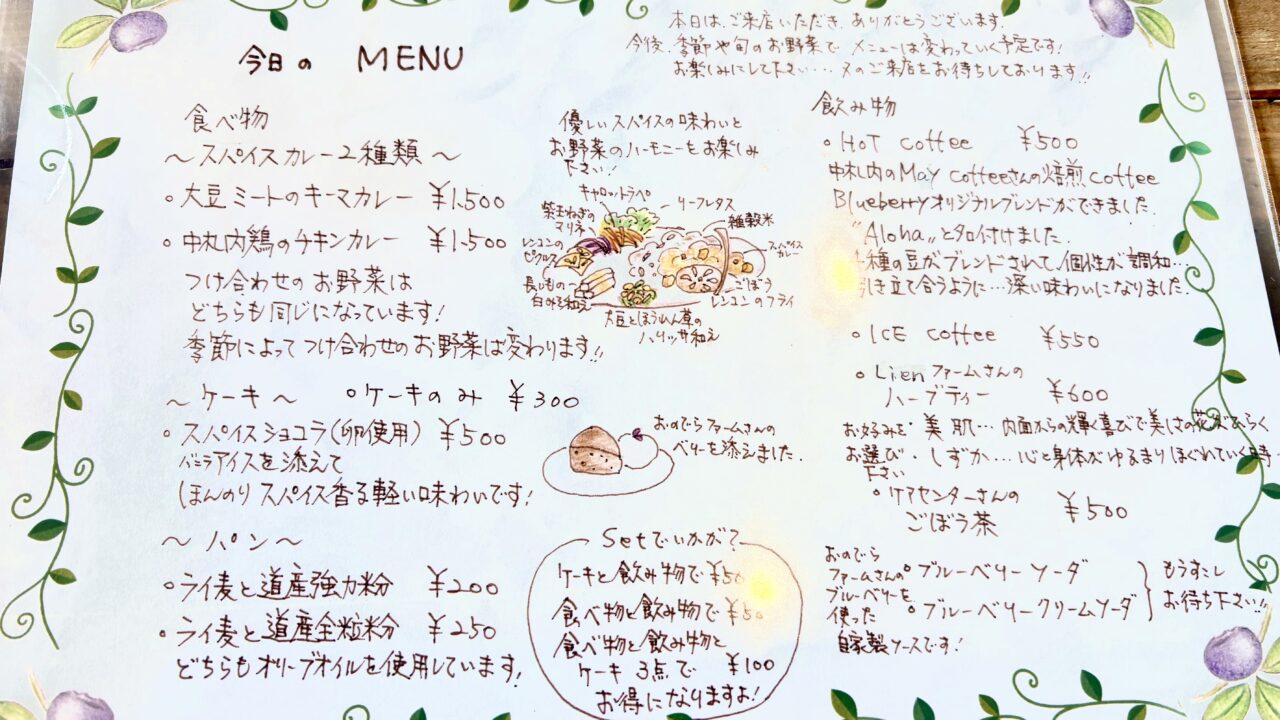 今日の MENU
本日は、ご来店いただき、ありがとうございます。
今後、季節や旬のお野菜で メニューは変わっていく予定です!
お楽しみにして下さい・・・ 又のご来店をお待ちしております!!
食べ物
～スパイスカレー2種類～
○大豆ミートのキーマカレー ¥1,500
○中札内鶏のチキンカレー ¥1,500
つけ合わせのお野菜は
どちらも同じになっています!
季節によってつけ合わせのお野菜は変わります!!
～ケーキ～ ○ケーキのみ ¥300
○スパイスショコラ(卵使用) ¥500
バニラアイスを添えて
ほんのりスパイス香る軽い味わいです!
～パン～
○ライ麦と道産強力粉 ¥200
○ライ麦と道産全粒粉 ¥250
どちらもオリーブオイルを使用しています!
優しいスパイスの味わいと
お野菜のハーモニーをお楽しみ
下さい!
キャロットラペ
リーフレタス
紫玉ねぎの
マリネ
雑穀米
スパイス
カレー
レンコンの
ピクルス
長いもの
白みそ和え
ごぼう
レンコンのフライ
大豆とほうれん草の
ハリッサ和え
おのでらファームさんの
ベリーを添えました.
Setでいかが?
ケーキと飲み物で ¥50
食べ物と飲み物で ¥50
食べ物と飲み物と
ケーキ 3点で ¥100
お得になりますよ!
飲み物
○HOT coffee ¥500
中札内のMay coffeeさんの焙煎coffee
Blueberryオリジナルブレンドができました.
"Aloha"と名付けました.
種の豆がブレンドされて、個性が調和…
引き立て合うように…深い味わいになりました.
○ICE coffee ¥550
○Lienファームさんの
ハーブティー ¥600
お好みを
お選び
下さい
・美肌…内面からの輝く喜びで美しさの花がひらく
・しずか…心と身体がゆるまりほぐれていく時
○ケアセンターさんの
ごぼう茶 ¥500
おのでら
ファームさんの
ブルーベリーを
使った
自家製ソースです!
○ブルーベリーソーダ
○ブルーベリークリームソーダ
もうすこし
お待ち下さい!!